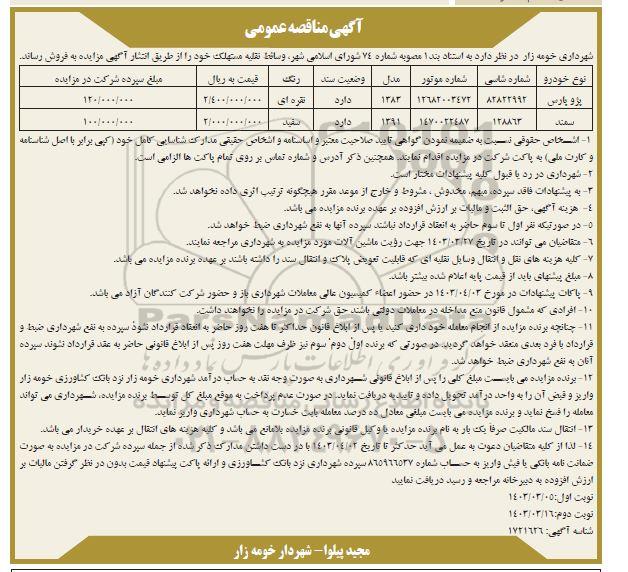 آگهی مناقصه عمومی
شهرداری خومه زار در نظر دارد به استناد بند۱ مصوبه شماره ۷۴ شورای اسلامی شهر، وسائط نقلیه مستهلک خود را از طریق انتشار آگهی مزایده به فروش رساند.
نوع خودرو شماره شاسی شماره موتور مدل وضعیت سند رنگ قیمت به ریال مبلغ سپرده شرکت در مزایده
پژو پارس ۸۲۸۲۲۹۹۲ ۱۲۶۸۲۰۰۳۴۷۲ ۱۳۸۳ دارد نقره ای ۲/۴۰۰/۰۰۰/۰۰۰ ۱۲۰/۰۰۰/۰۰۰
سمند ۱۲۸۸۶۳ ۱۴۷۰۰۲۲۴۸۷ ۱۳۹۱ دارد سفید ۲/۰۰۰/۰۰۰/۰۰۰ ۱۰۰/۰۰۰/۰۰۰
۱- اشخاص حقوقی نسبت به ضمیمه نمودن گواهی تایید صلاحیت معتبر و اساسنامه و اشخاص حقیقی مدارک شناسایی کامل خود (کپی برابر با اصل شناسنامه
و کارت ملی) به پاکت شرکت در مزایده اقدام نمایند. همچنین ذکر آدرس و شماره تماس بر روی تمام پاکت ها الزامی است.
۲- شهرداری در رد یا قبول کلیه پیشنهادات مختار است.
۳- به پیشنهادات فاقد سپرده، مبهم، مخدوش ، مشروط و خارج از موعد مقرر هیچگونه ترتیب اثری داده نخواهد شد.
۴- هزینه آگهی، حق الثبت و مالیات بر ارزش افزوده بر عهده برنده مزایده می باشد.
۵- در صورتیکه نفر اول تا سوم حاضر به انعقاد قرارداد نباشند سپرده آنها به نفع شهرداری ضبط خواهد شد.
۶- متقاضیان می توانند در تاریخ ۱۴۰۳/۰۳/۲۷ جهت رؤیت ماشین آلات مورد مزایده به شهرداری مراجعه نمایند.
۷- کلیه هزینه های نقل و انتقال وسایل نقلیه ای که قابلیت تعویض پلاک و انتقال سند را داشته باشند بر عهده برنده مزایده می باشد.
۸- مبلغ پیشنهادی باید از قیمت پایه اعلام شده بیشتر باشد.
۹- پاکات پیشنهادات در مورخ ۱۴۰۳/۰۴/۰۳ در حضور اعضاء کمیسیون عالی معاملات شهرداری باز و حضور شرکت کنندگان آزاد می باشد.
۱۰- افرادی که مشمول قانون منع مداخله در معاملات دولتی باشند حق شرکت در مزایده را نخواهند داشت.
۱۱- چنانچه برنده مزایده از انجام معامله خود داری کنید یا پس از ابلاغ قانون حداکثر تا هفت روز حاضر به انعقاد قرارداد نشود سپرده به نفع شهرداری ضبط و
قرارداد با فرد بعدی منعقد خواهد گردید. در صورتی که برنده اول دوم سوم نیز ظرف مهلت هفت روز پس از ابلاغ قانونی حاضر به عقد قرارداد نشوند سپرده
آنان به نفع شهرداری ضبط خواهد شد.
۱۲- برنده مزایده می بایست مبلغ کلی را پس از ابلاغ قانونی شهرداری به صورت وجه نقد به حساب درآمد شهرداری خومه زار نزد بانک کشاورزی خومه زار
واریز و فیش آن را به واحد درآمد تحویل داده و تاییدیه دریافت نماید. در صورت عدم پرداخت به موقع مبلغ کل توسط برنده مزایده، شهرداری می تواند
معامله را فسخ نماید و برنده مزایده می بایست مبلغی معادل ده درصد معامله بابت خسارت به حساب شهرداری واریز نماید.
۱۳- انتقال سند مالکیت صرفا یک بار به نام برنده مزایده یا وکیل قانونی برنده مزایده بلامانع می باشد و کلیه هزینه های انتقال بر عهده خریدار می باشد.
۱۴- لذا از کلیه متقاضیان دعوت به عمل می آید حد کثر تا تاریخ ۱۴۰۳/۰۴/۰۲ با در دست داشتن مدارک ذکر شده از جمله سپرده شرکت در مزایده به صورت
ضمانت نامه بانکی یا فیش واریز به حساب شماره ۸۶۵۹۶۶۵۳۷ سپرده شهرداری نزد بانک کشاورزی و ارائه پاکت پیشنهاد قیمت بدون در نظر گرفتن مالیات بر
ارزش افزوده به دبیرخانه مراجعه و رسید دریافت نمایید
نوبت اول:۱۴۰۳/۰۳/۰۵
نوبت دوم:۱۴۰۳/۰۳/۱۶
شناسه آگهی: ۱۷۲۱۶۲۶
مجید پیلوا- شهردار خومه زار
ParsNamadData
پایگاه اطلاع رسانی مناقصه و مزایده
۰۲۱-۸۸۳۴۹۶۷۰-۵